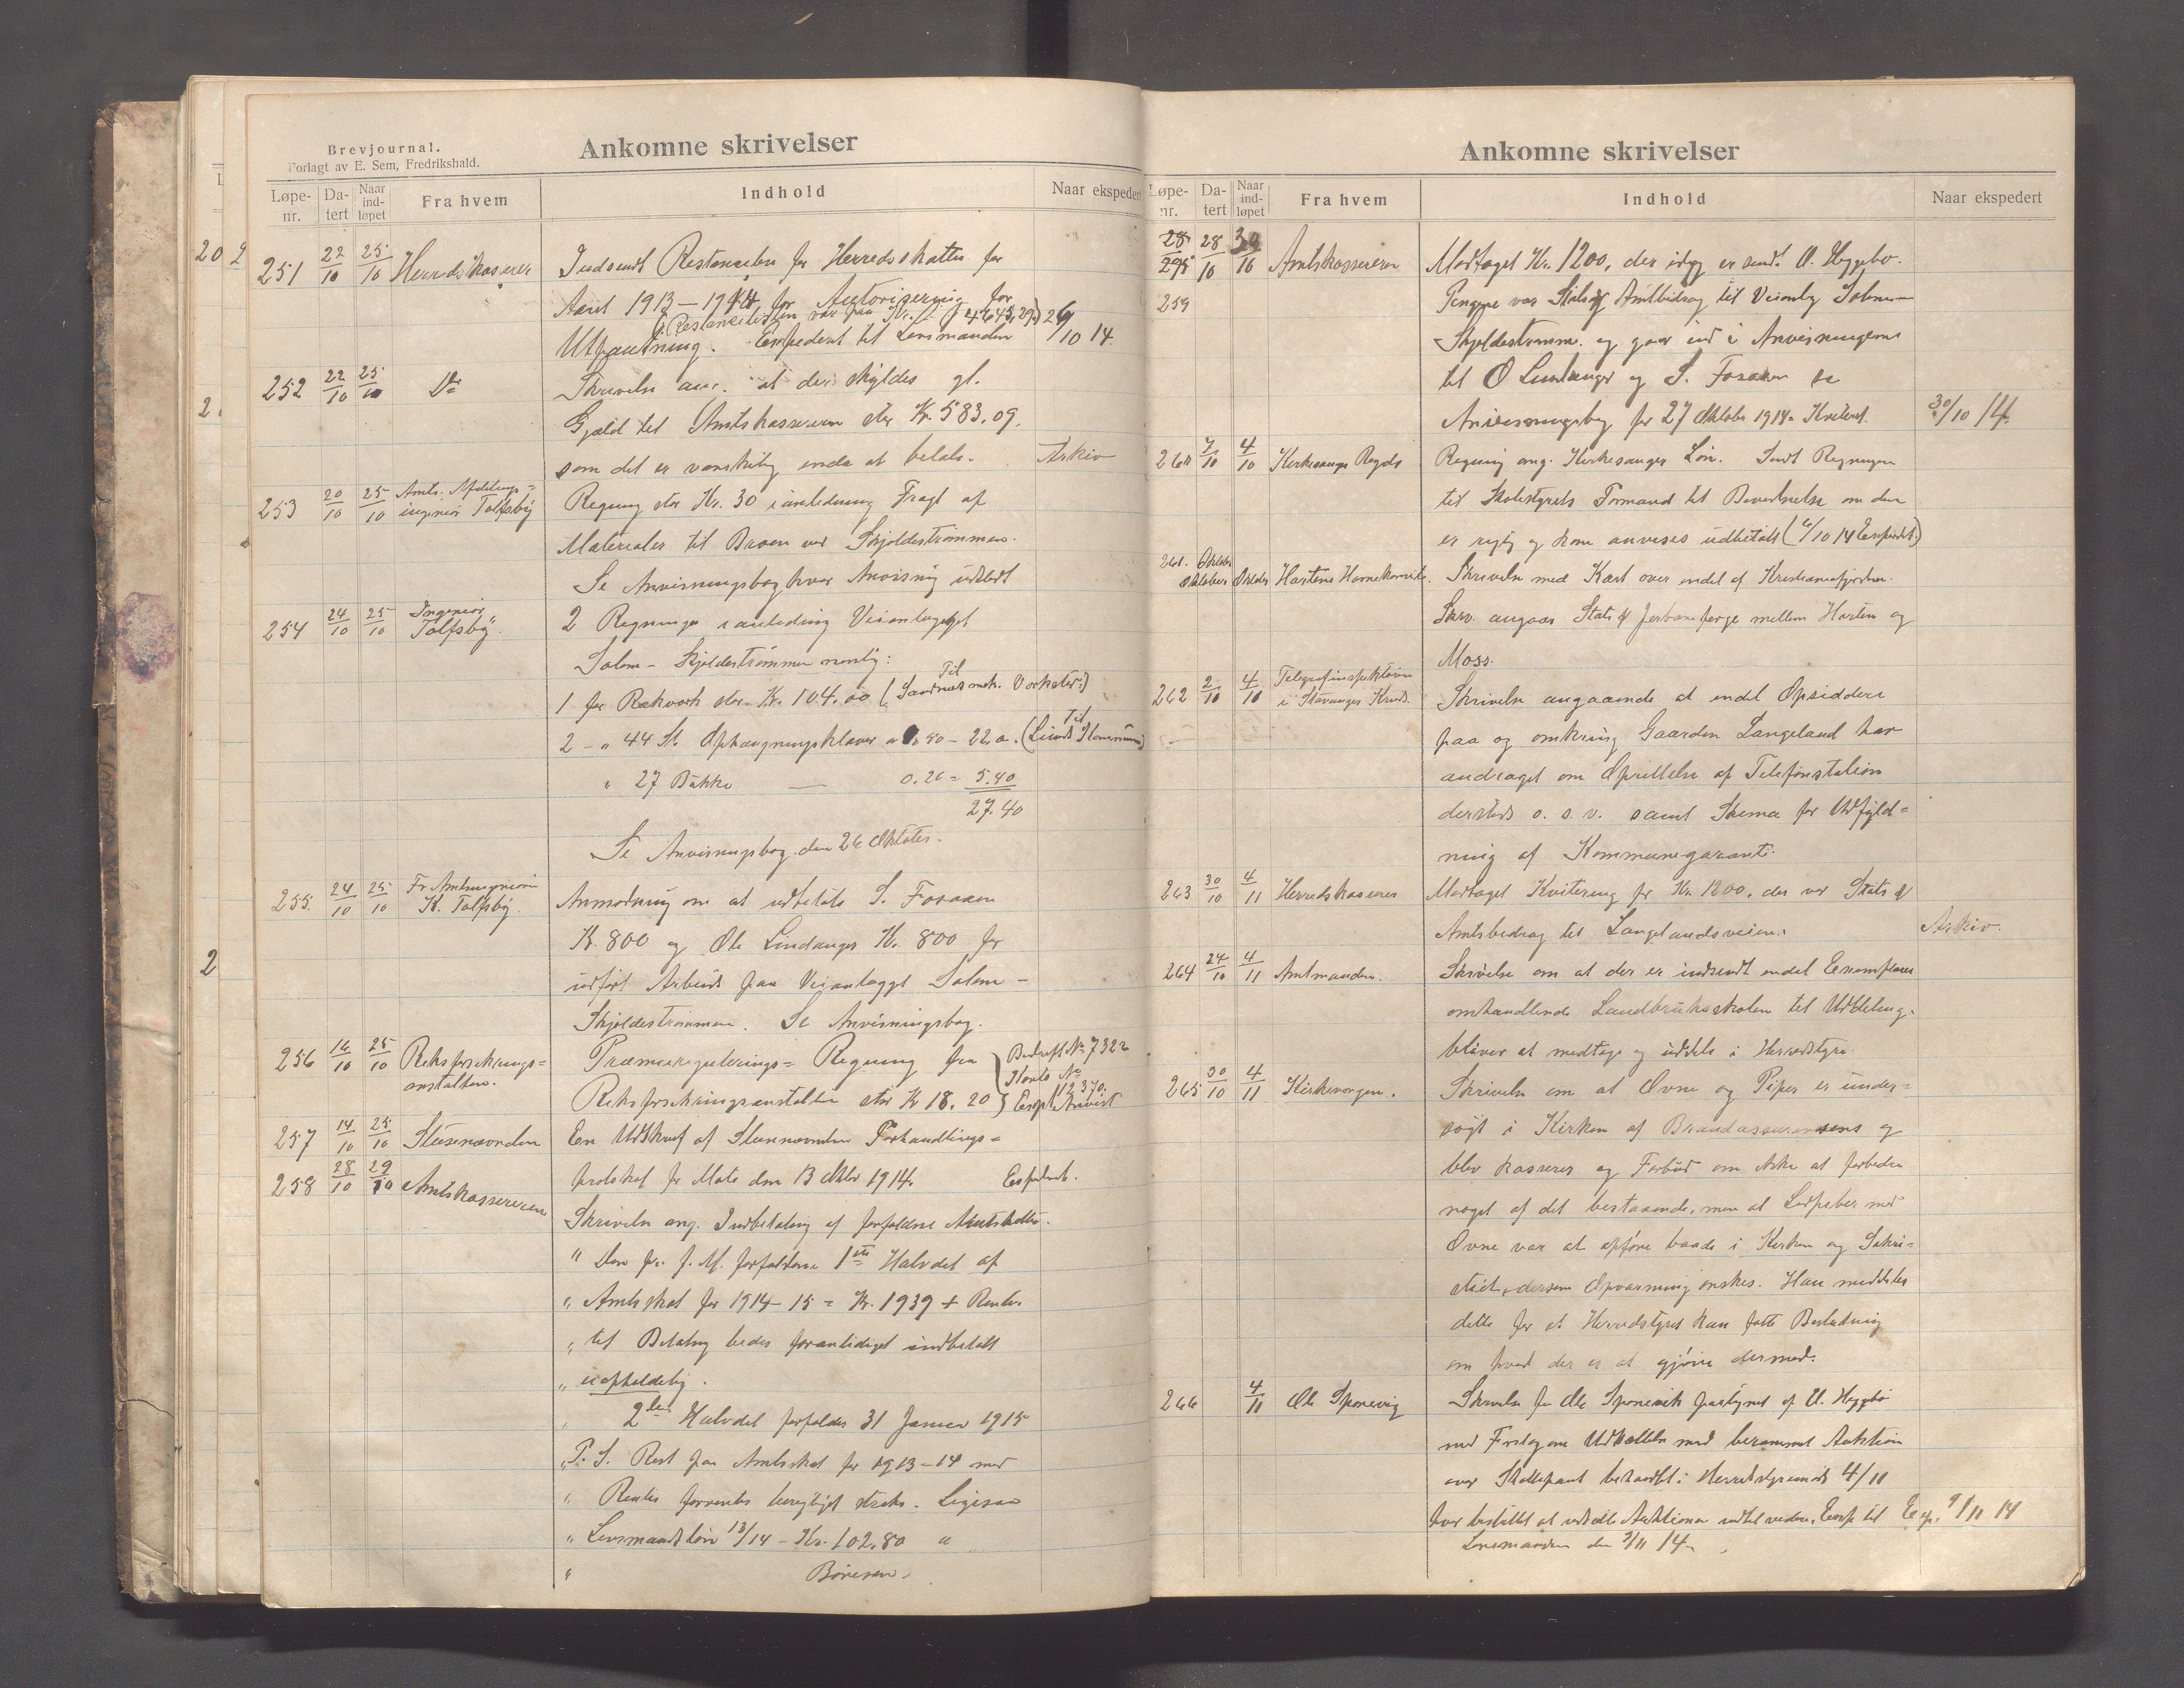 Brevjournal.
Forlagt av E. Sem, Fredrikshald.
Ankomne skrivelser
Løpe-nr. Da-tert Naar ind-løpet Fra hvem Indhold Naar ekspedert
251 22/10 25/10 Herredskasserer Indsendt Restanselse for Herredsskatter for
Aaret 1913-1914 for Autorisering for
(Restancelisten var paa Kr. 4643,29.) 26/10 14.
Utpantning. Expedert til Lensmanden
252 22/10 25/10 Do Skrivelse at der skyldes gl.
Gjæld til Amtskassereren stor Kr. 583.09,
som det er vanskelig enda at betale. Arkiv
253 20/10 25/10 Amts. Afdelings=
ingeniør Tolfsby Regning stor Kr. 30 i anledning Fragt af
Materialer til Broen ved Skjoldestrømmen.
Se Anvisningsbog hvor Anvisning udstedt
254 24/10 25/10 Ingeniør
Tolfsby. 2 Regninger i anledning Veianlægget
Solem - Skjoldestrømmen nemlig:
1 for Rækverk stor Kr. 104.00 (Til Sandnes mek. Værksted.)
2 - " 44 St. Ophængningsklaver a 0.50 - 22.0. (Til
" 27 Bukke — 0.20 = 5.40
27.40
Se Anvisningsbog den 26 Oktober.
255. 24/10 25/10 Fr. Amtingeniøren
K. Tolfsby. Anmodning om at udbetale S. Fosaaen
Kr. 800 og Ole Lindanger Kr. 800 for
udført Arbeide paa Veianlægget Solem -
Skjoldestrømmen. Se Anvisningsbog.
256 16/10 25/10 Riksforsikrings=
anstalten. Præmieregulerings= Regning fra
Bedrift No 7322
Konto No
12370.
Riksforsikringsanstalten stor Kr 18.20 Exp. Anvist
257 14/10 25/10 Skussnævnden En Udskrift af Skussnævndens Forhandlings=
protokol for Møte den 13 Oktbr 1914. Expedert.
258 28/10 29/10 Amtskassereren
Skrivelse ang. Indbetaling af forfaldne Amtsskatter.
" Den pr. f. M. forfaldne 1ste Halvdel af
" Amtsskat for 1914-15 = Kr. 1939 + Renter
" til Betaling bedes foranlediget indbetalt
" uopholdelig.
" 2den Halvdel forfalder 31 Januar 1915
" P. S. Rest paa Amtsskat for 1913-14 med
" Renter forventes berigtiget straks. Ligesaa
" Lensmandsløn 13/14 - Kr. 102.80
" Børresen.
Ankomne skrivelser
Løpe-nr. Da-tert Naar ind-løpet Fra hvem Indhold Naar ekspedert
28/10 30/10 Amtskassereren Modtaget Kr. 1200, der idag er sendt O. Heggebø.
259 Pengene var Stats & Amtsbidrag til Veianlæg Solem -
Skjoldestrømm. og gaar ind i Anvisningerne
til O Lindanger og S. Fosaaen se
Anvisningsbog for 27 Oktober 1914. Kvitert. 30/10 14.
260 7/10 4/10 Kirkesanger Regning ang. Kirkesanger Løn. Sendt Regningen
til Skolestyrets Formand til Bevidnelse om den
er rigtig og kan anvises udbetalt (6/10 14 Expedert)
261. Oktober Oktober Hortens Havnekomite. Skrivelse med Kart over endel af Kristianiafjorden.
Skrv. angaar Stats & Jernbaneferge mellem Horten og
Moss.
262 2/10 4/10 Telegrafinspektøren
i Stavanger Kreds. Skrivelse angaaende at endel Opsiddere
paa og omkring Gaarden Langeland har
andraget om Oprettelse af Telefonstation
dersteds o. s. v. samt Skema for Udfyld=
ning af Kommunegaranti.
263 30/10 4/11 Herredskasserer Modtaget Kvitering for Kr. 1200. der var Stats &
Amtsbedrag til Langelandsveien. Arkiv.
264 24/10 4/11 Amtmanden. Skrivelse om at der er indsendt endel Exemplarer
omhandlende Landbruksskolen til Uddeling.
bliver at medtage og uddele i Herredstyre.
265 30/10 4/11 Kirkevergen. Skrivelse om at Ovne og Piper er under=
søgt i Kirken af Brandassuransens og
blev kasseret og Forbud om ikke at forbedre
noget af det bestaaende, men at med
Ovne var at opføre baade i Kirken og Sakri=
stiet, dersom Opvarmning ønskes. Han meddeles
dette for at Herredstyret kan fatte Beslutning
om hvad der er at gjøre dermed.
266 4/11 Ole Sponevig Skrivelse fra Ole Sponevik paategnet af O. Heggebø
med Forslag om Udsættelse med berammet Auktion
over Skattepant behandlet i Herredstyremøde 4/11
hvor besluttet at udsætte Auktionen indtil videre. Exp til Exp. 9/11 14
Lensmanden den 9/11 14.